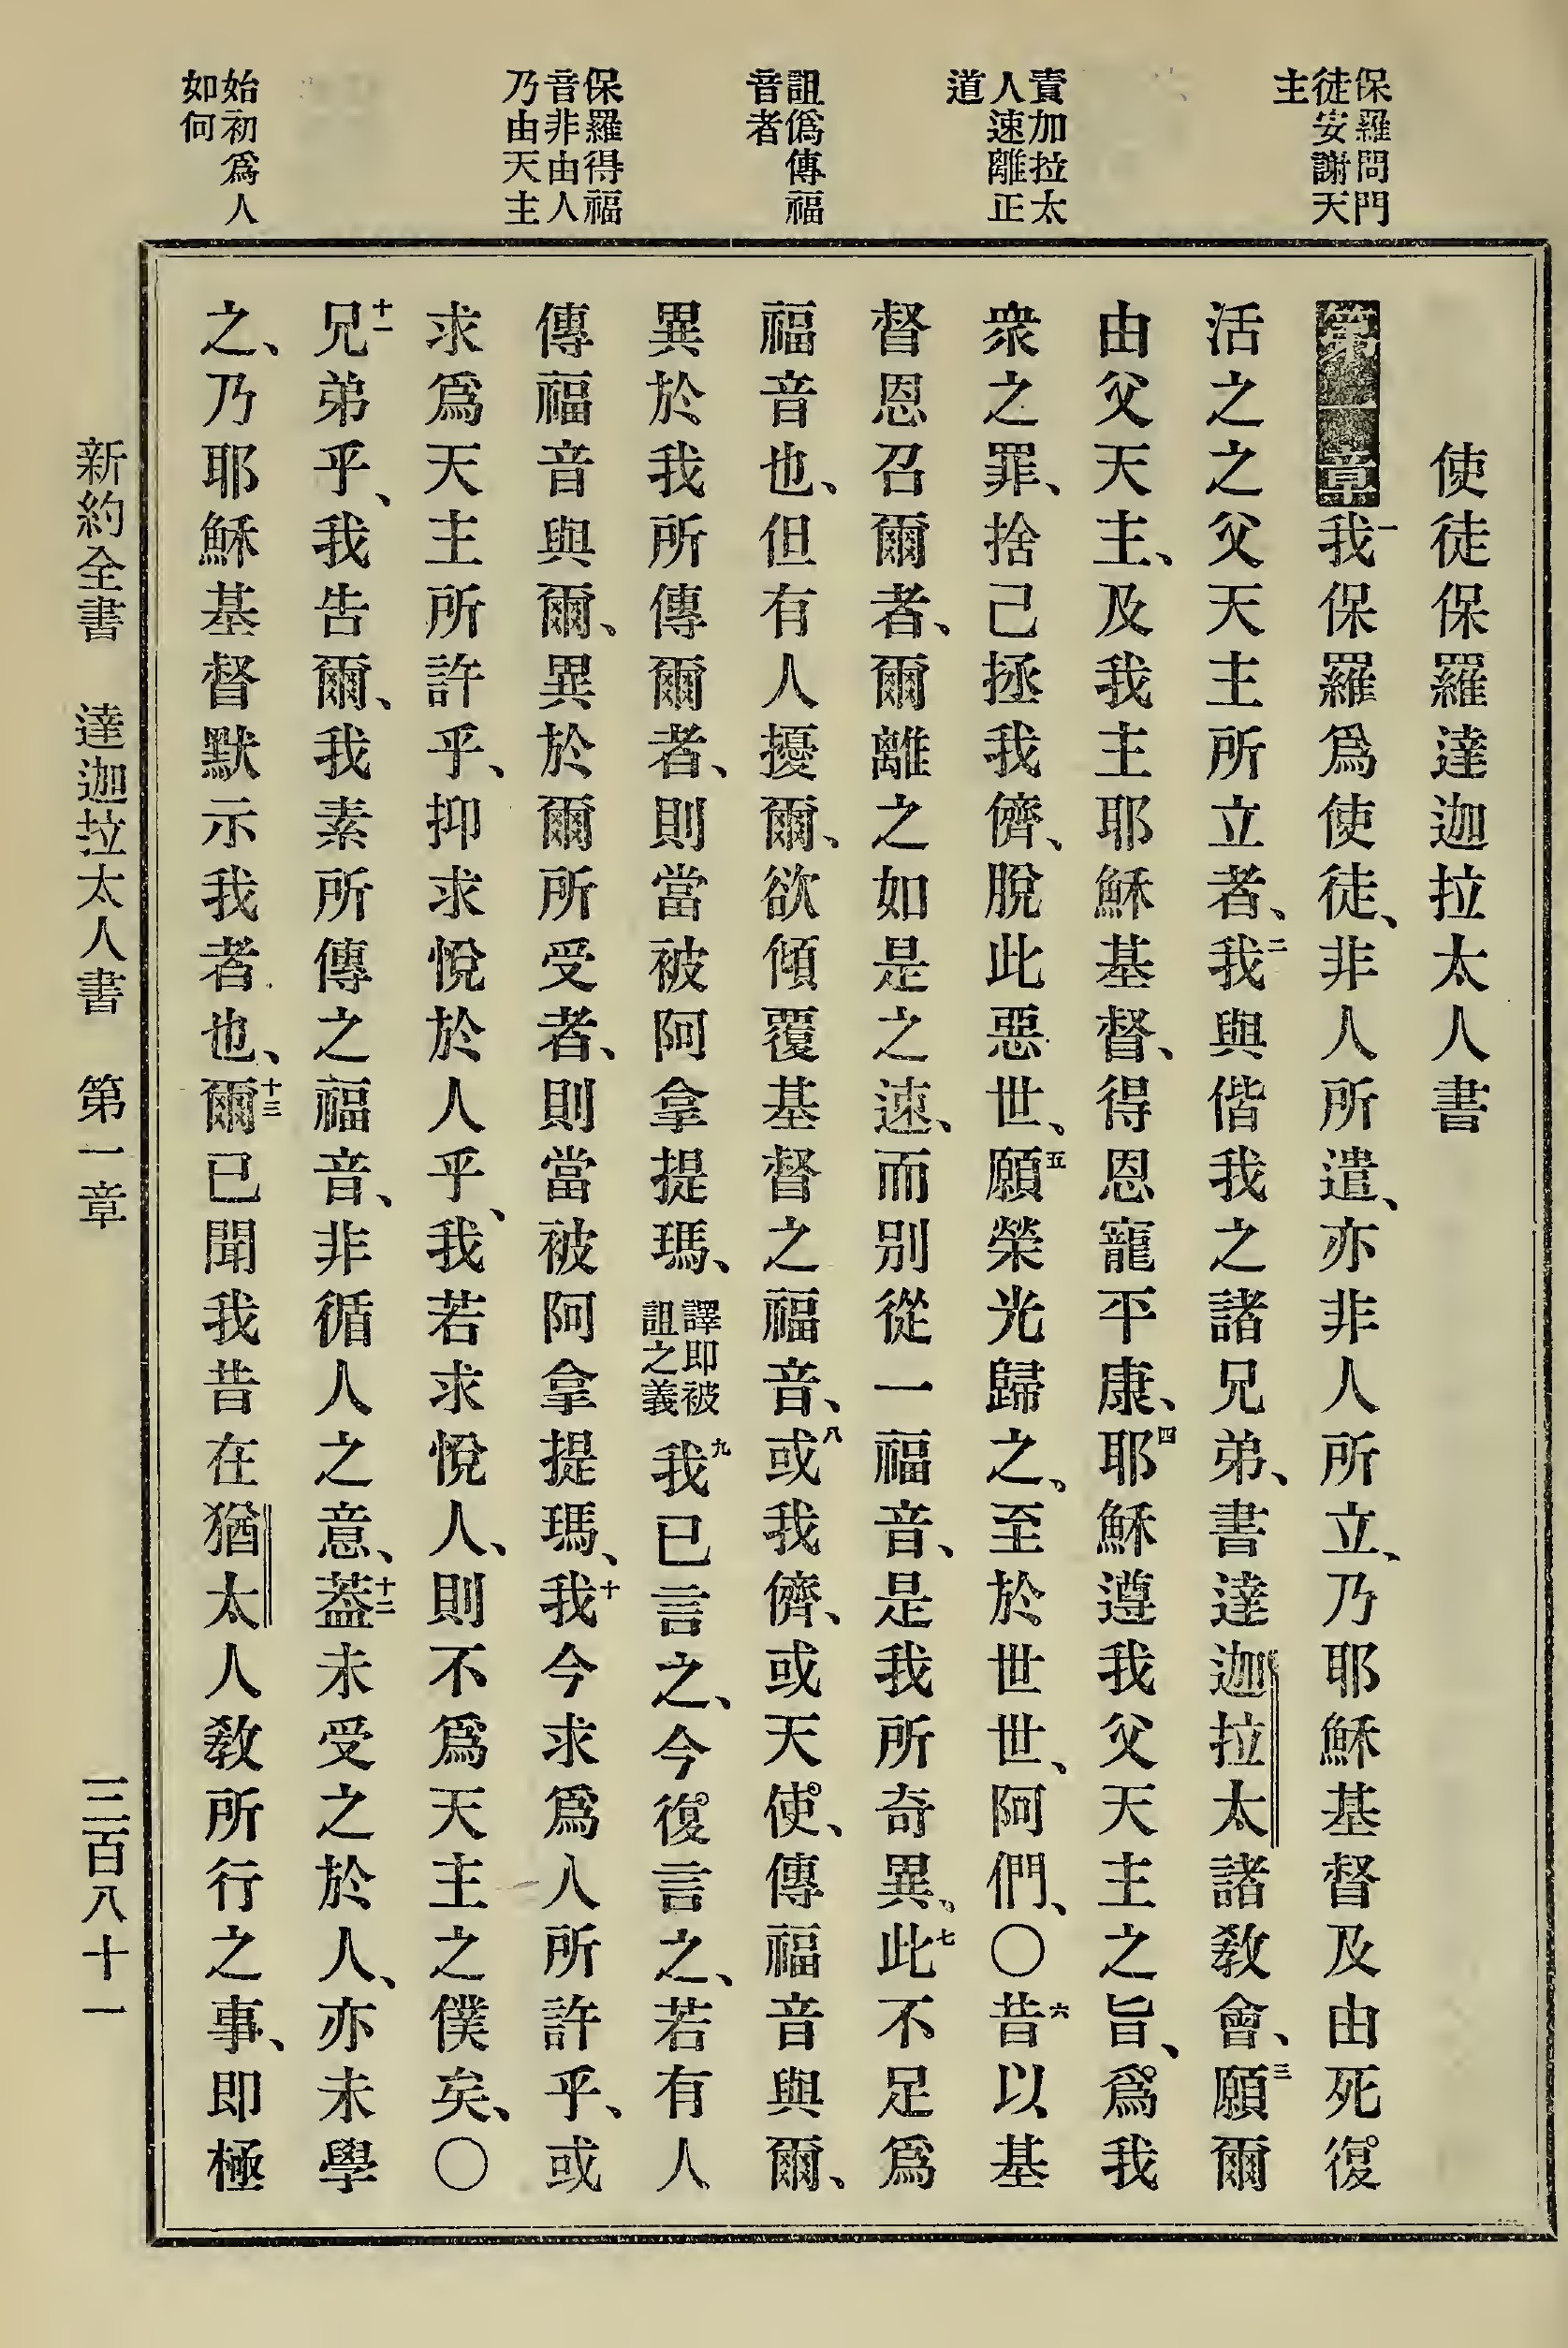 保羅問門
徒安謝天
主
責加拉太
人速離正
道
詛僞傳福
音者
保羅得福
音非由人
乃由天主
始初爲人
如何
使徒保羅達迦拉太人書
第一章一我保羅爲使徒、非人所遣、亦非人所立、乃耶穌基督及由死復
活之之父天主所立者、二我與偕我之諸兄弟、書達迦拉太諸敎會、三願爾
由父天主、及我主耶穌基督、得恩寵平康、四耶穌遵我父天主之旨、爲我
衆之罪、捨己拯我儕、脫此惡世、五願榮光歸之、至於世世、阿們、〇六昔以基
督恩召爾者、爾離之如是之速、而別從一福音、是我所奇異、七此不足爲
福音也、但有人擾爾、欲傾覆基督之福音、八或我儕、或天使、傳福音與爾、
異於我所傳爾者、則當被阿拿提瑪、譯即被詛之義九我已言之、今復言之、若有人
傳福音與爾、異於爾所受者、則當被阿拿提瑪、十我今求爲人所許乎、或
求爲天主所許乎、抑求悅於人乎、我若求悅人、則不爲天主之僕矣、〇
十一兄弟乎、我告爾、我素所傳之福音、非循人之意、十二蓋未受之於人、亦未學
之、乃耶穌基督默示我者也、十三爾已聞我昔在猶太人敎所行之事、即極
新約全書 達迦拉太人書 第一章 三百八十一